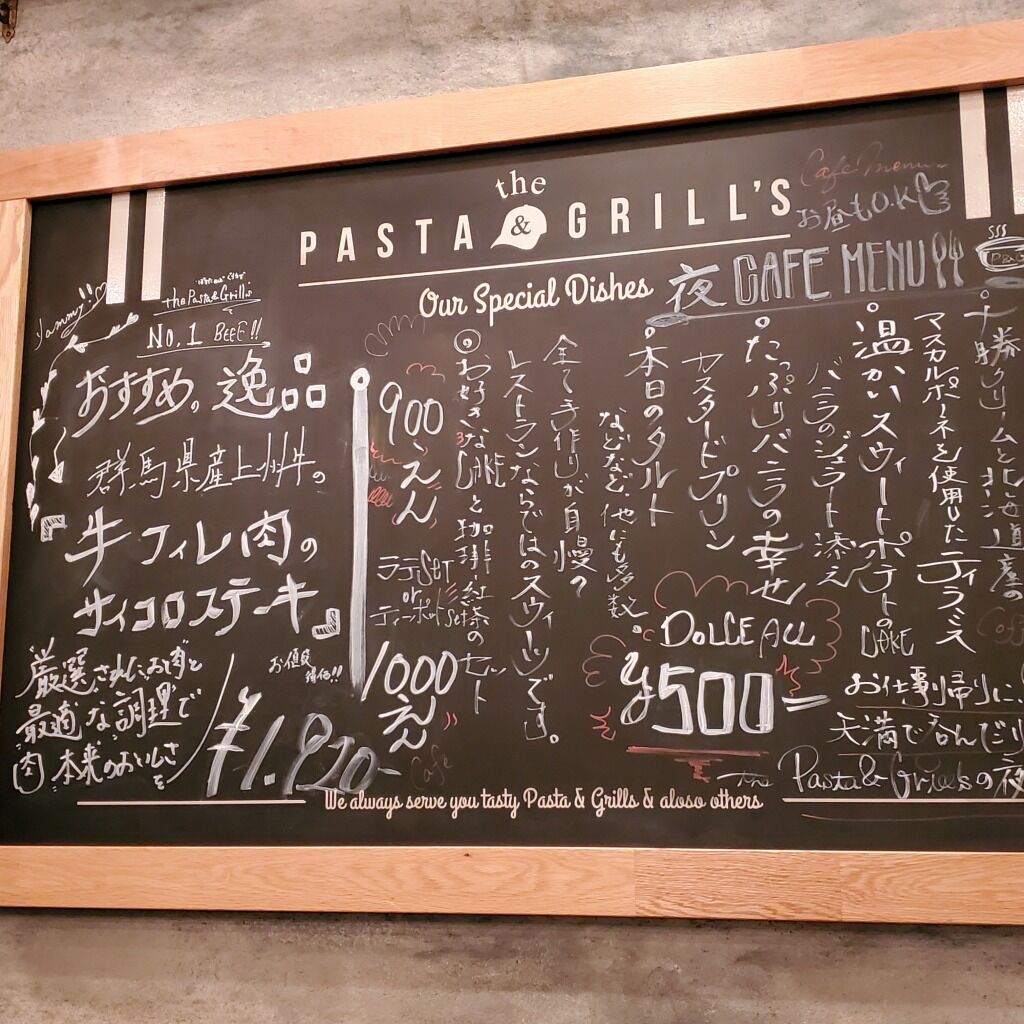 the
PASTA & GRILL'S
Our Special Dishes
Yammy
the Pasta&Grill's
No,1 BEEF!!
おすすめの逸品
群馬県産上州牛の
牛フィレ肉の
サイコロステーキ」
厳選されたお肉と
最適な調理で
肉本来のおいしさを
お値段
¥1,920-
Cafe menu
お昼もO.K
夜 CAFE MENU
十勝クリームと北海道産の
マスカルポーネを使用したティラミス
温かいスウィートポテトのCAKE
バニラのジェラート添え
たっぷりバニラの幸せ
カスタードプリン
本日のタルト
などなど、他にも多数。
全て手作りが自慢の
レストランならではのスウィーツです。
お好きなCAKEと珈琲・紅茶のセット
900えん
ラテSET
or
ティーポットSET
1000えん
DOLCE ALL
¥500-
お仕事帰りに、
天満で呑んだり
the Pasta&Grill'sの夜
We always serve you tasty Pasta & Grills & aloso others